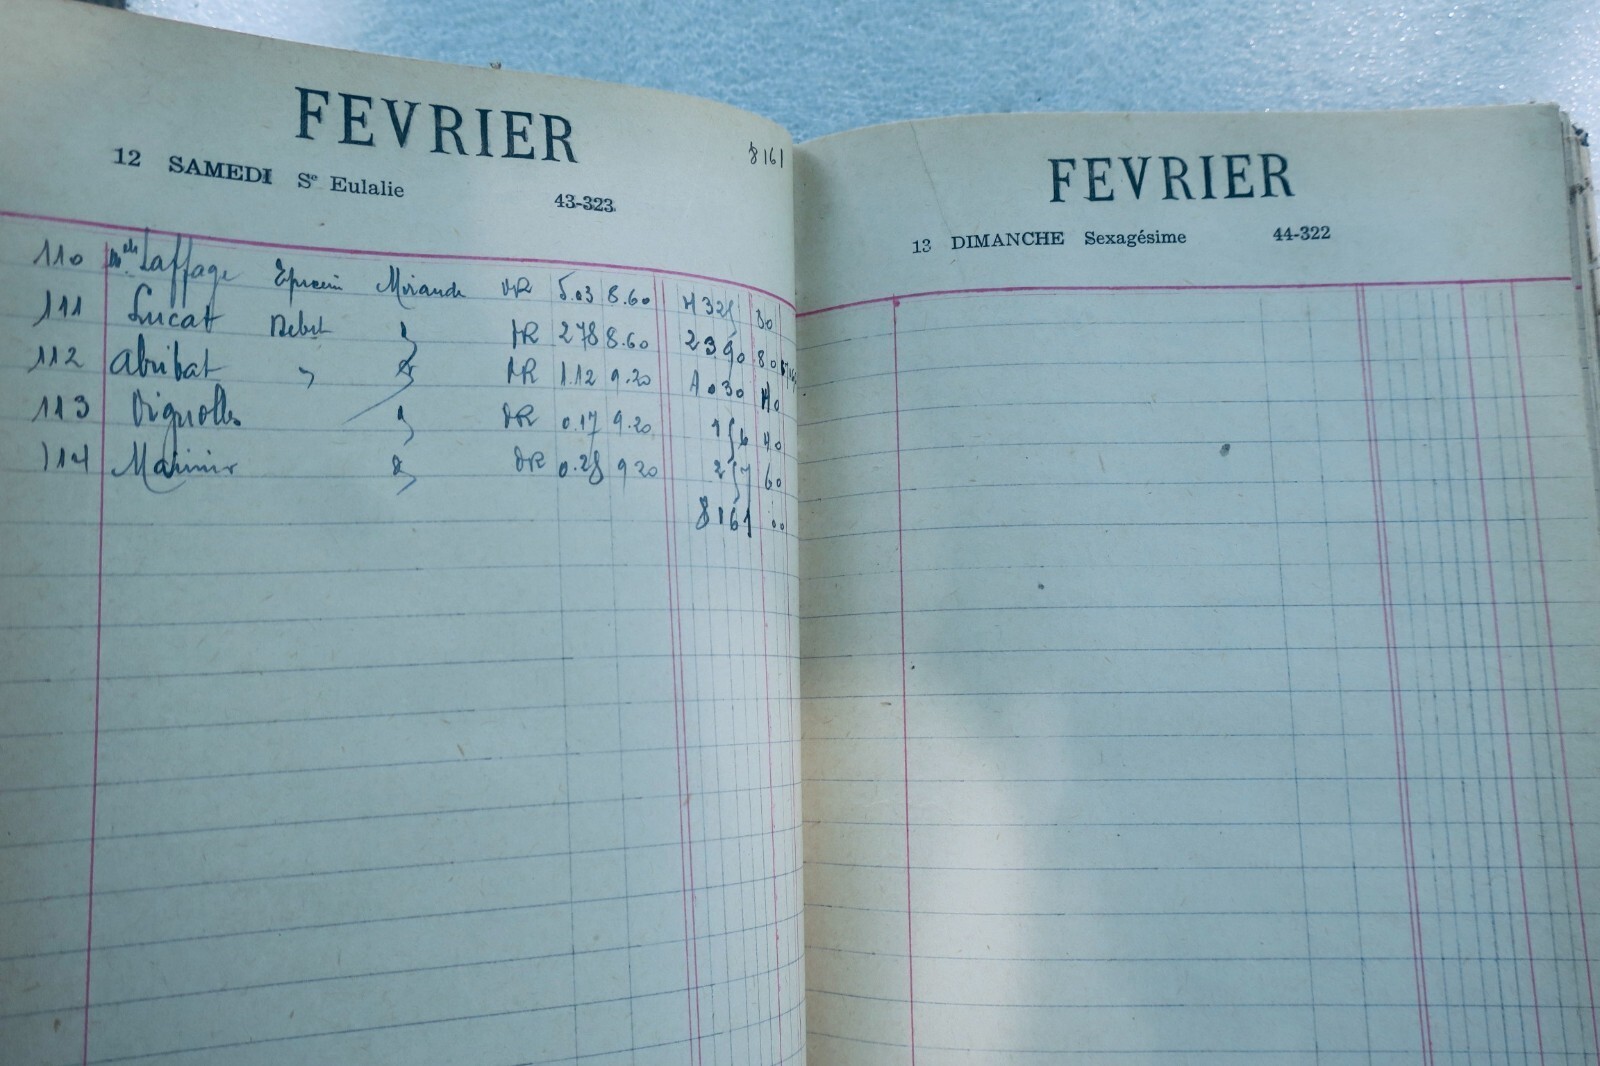 FEVRIER
8161
12 SAMEDI Se Eulalie 43-323
110 Melle Laffage Epicerie Mirande DR 5.03 8.60 4325 80
111 Lucat Debit " DR 278 8.60 2390 80
112 Abribat " " DR 1.12 9.20 1030 40
113 Vignolles " DR 0.17 9.20 156 40
114 " DR 0.28 9.20 257 60
8161 00
FEVRIER
13 DIMANCHE Sexagésime 44-322